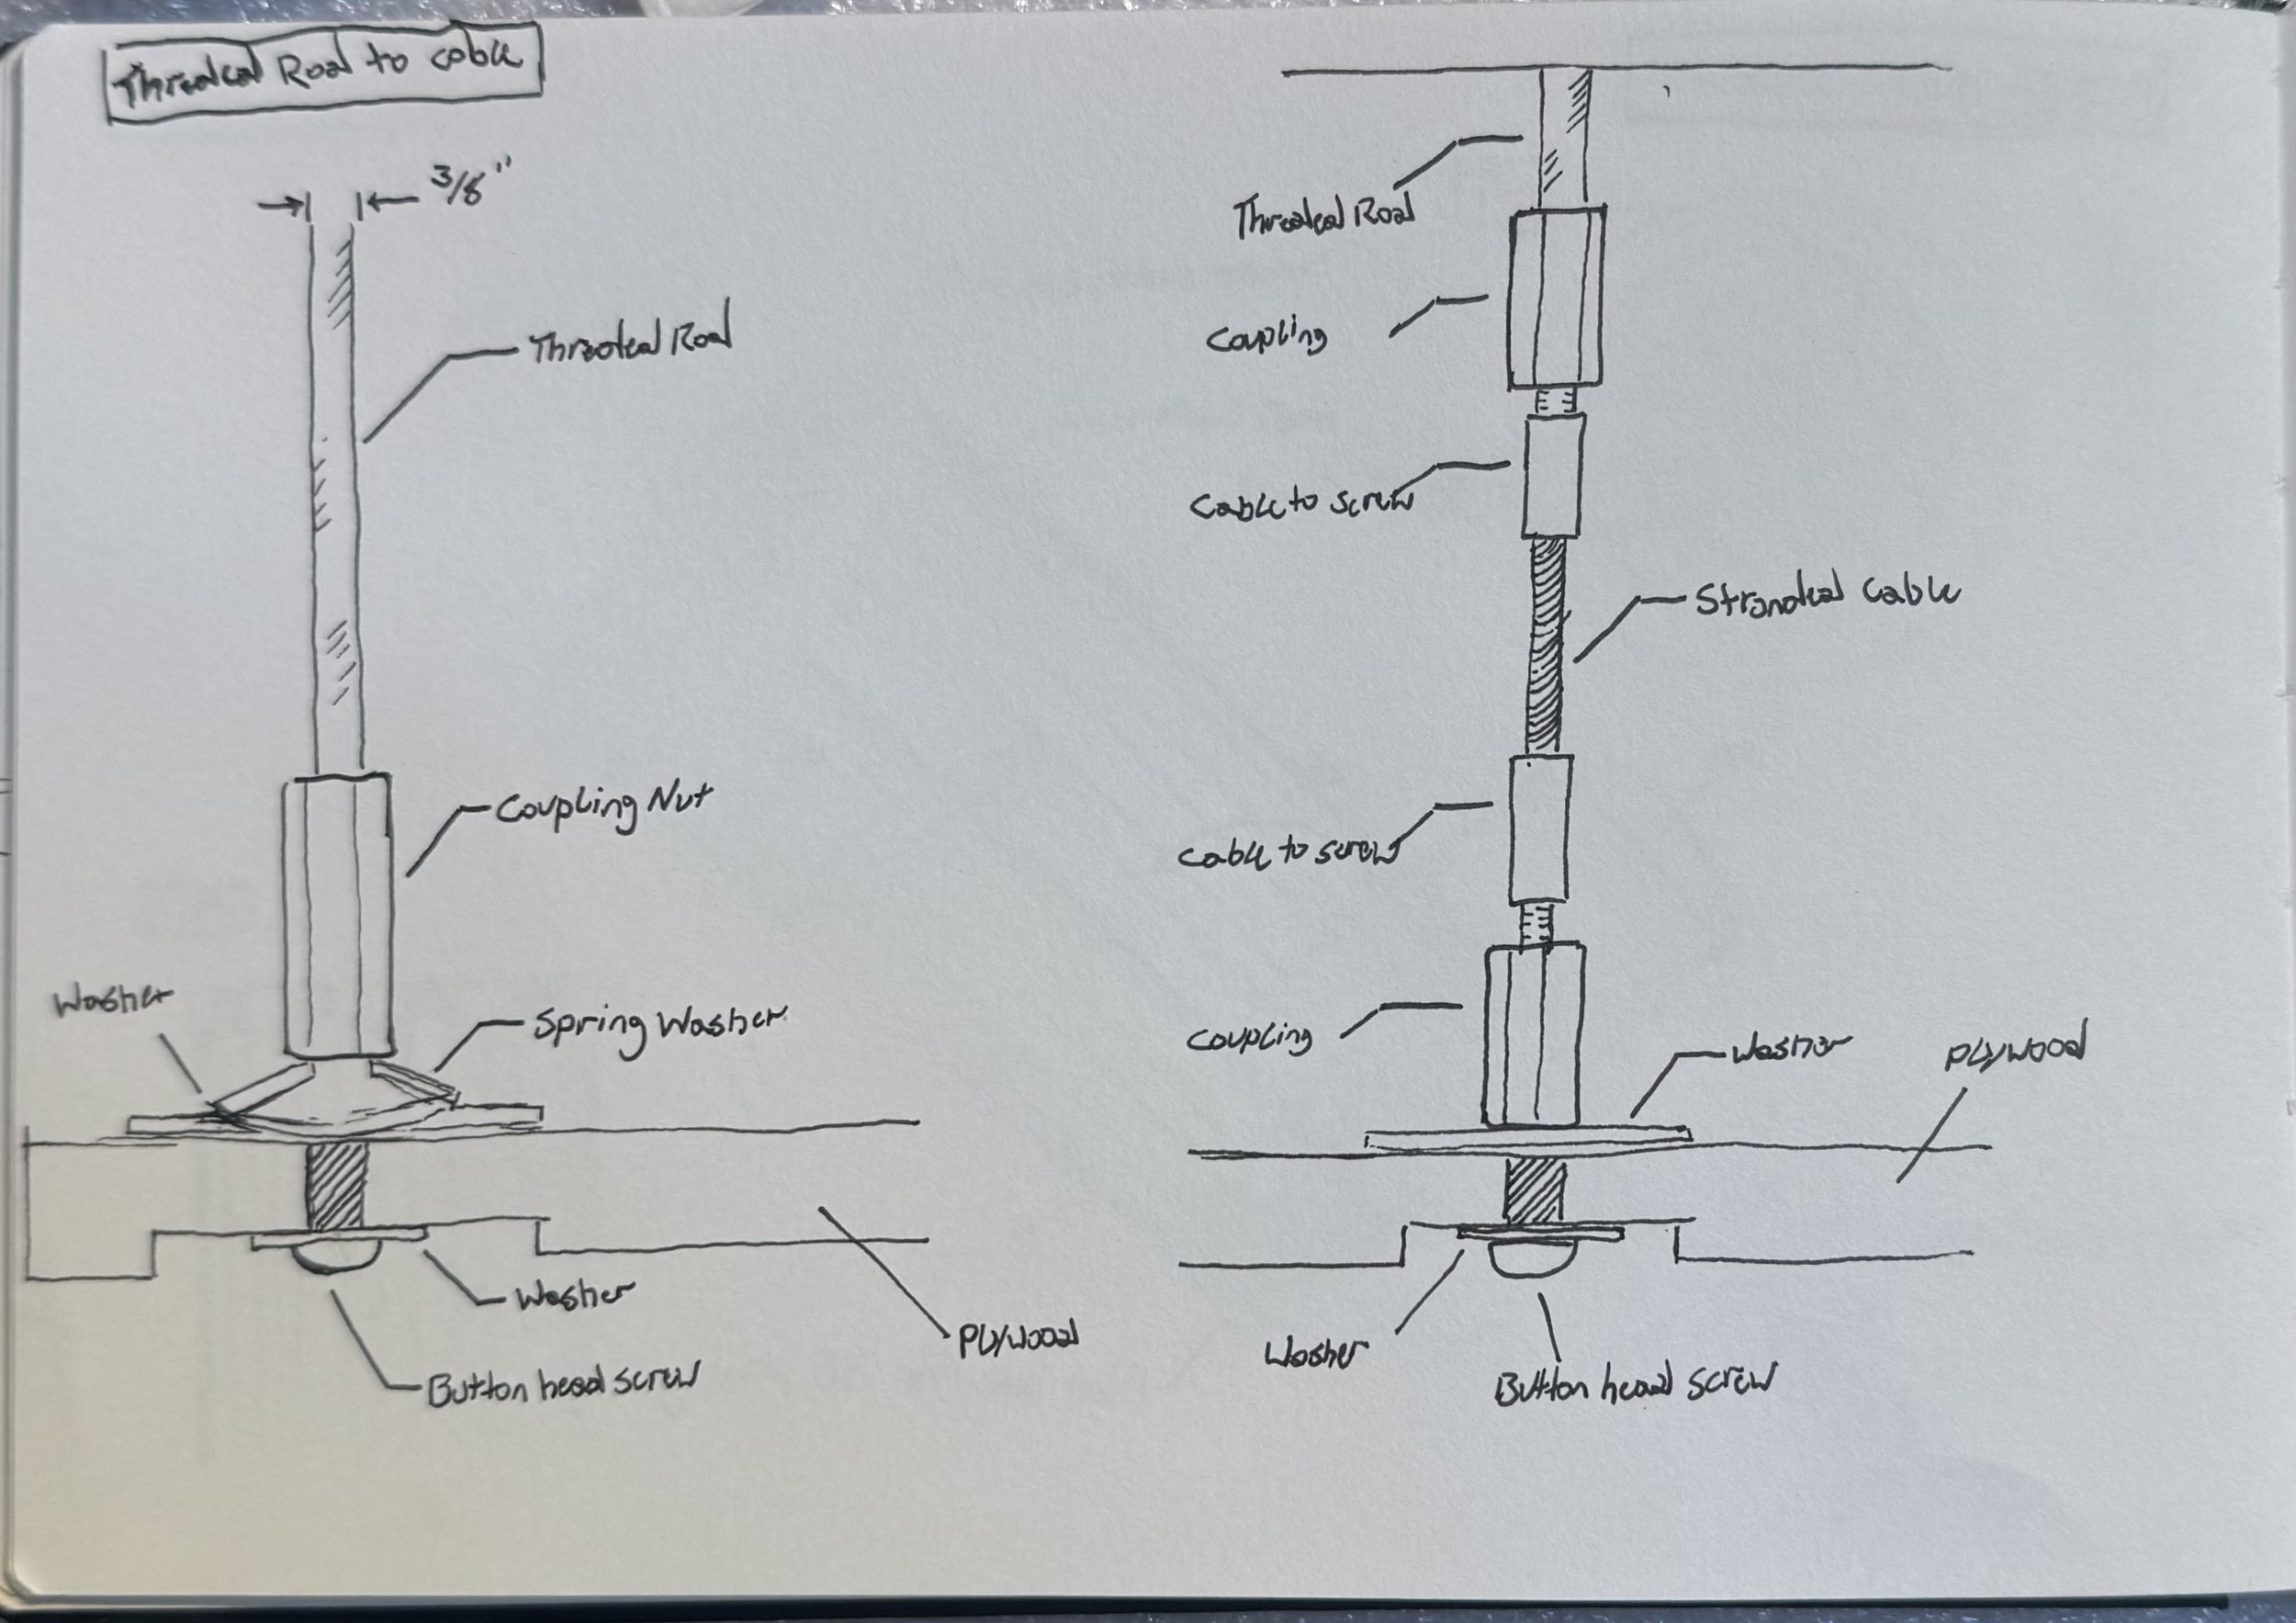 Threaded Rod to cable
3/8"
Threaded Rod
Coupling Nut
Washer
Spring Washer
Washer
Plywood
Button head screw
Threaded Rod
Coupling
Cable to screw
Stranded Cable
Cable to screw
Coupling
Washer
Plywood
Washer
Button head screw